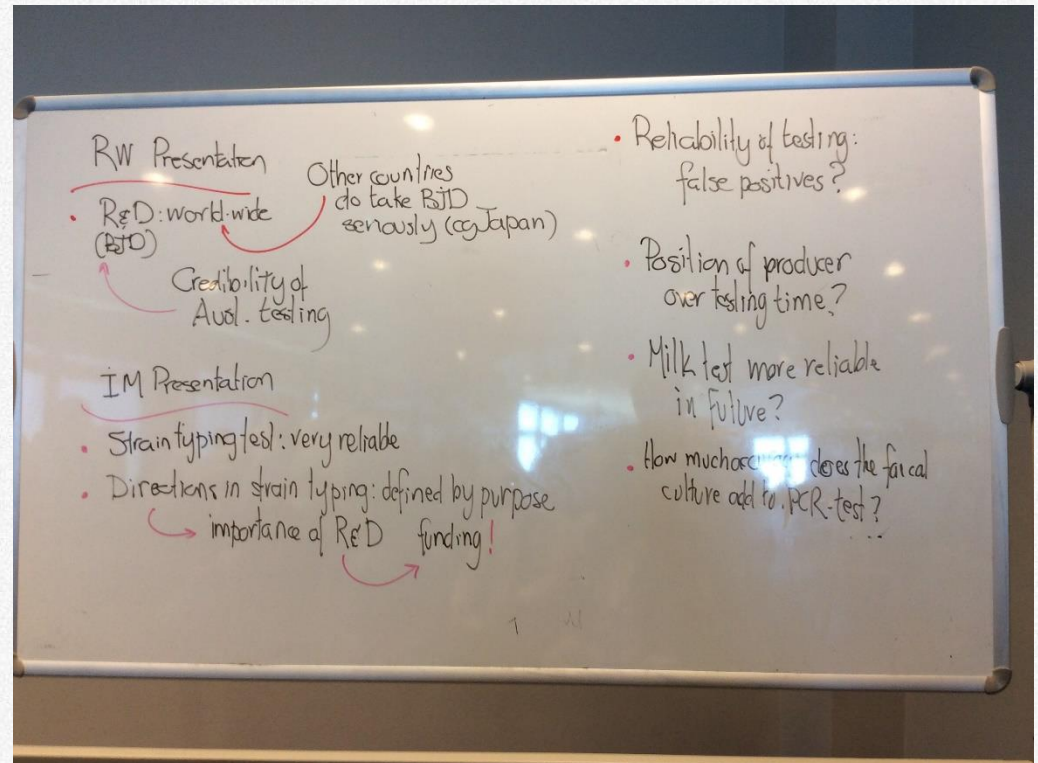 RW Presentation
• R&D: world-wide
(BJD)
Other countries
do take BJD
seriously (eg Japan)
Credibility of
Aust. testing
IM Presentation
• Strain typing test: very reliable
• Directions in strain typing: defined by purpose
importance of R&D funding!
• Reliability of testing:
false positives?
• Position of producer
over testing time?
• Milk test more reliable
in future?
• How much does the faecal
culture add to PCR-test?
...